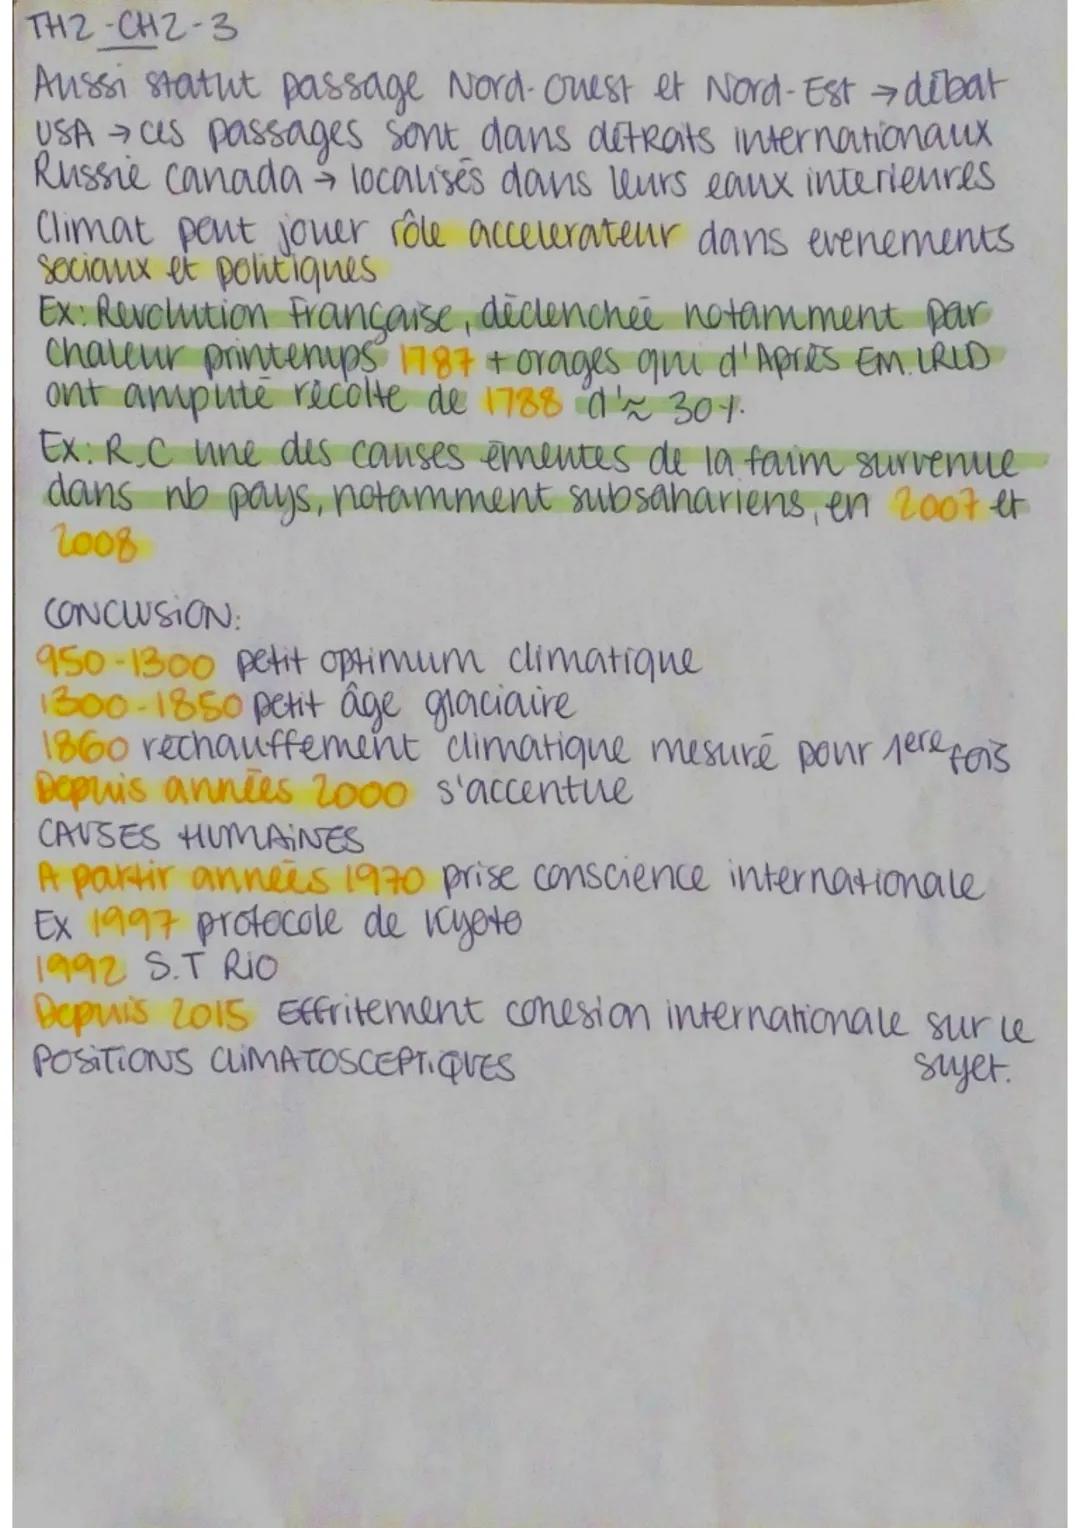 TH2-CH2-3
Aussi statut passage Nord-Ouest et Nord-Est → débat
USA → ces passages sont dans détroits internationaux
Russie Canada → localisés dans leurs eaux interieures
Climat peut jouer rôle accelerateur dans evenements
sociaux et politiques
Ex: Revolution Française, déclenchée notamment par
chaleur printemps 1787 + orages qui d'Après EM.LRLD
ont amputé récolte de 1788 d'≈ 30%.
Ex: R.C une des causes émeutes de la faim survenue
dans nb pays, notamment subsahariens, en 2007 et
2008
CONCLUSION:
950-1300 petit optimum climatique
1300-1850 petit âge glaciaire
1860 rechauffement climatique mesuré pour 1ere fois
Depuis années 2000 s'accentue
CAUSES HUMAINES
A partir années 1970 prise conscience internationale
Ex 1997 protocole de Kyoto
1992 S.T RIO
Depuis 2015 Effritement cohesion internationale sur le
sujet.
POSITIONS CLIMATOSCEPTIQUES